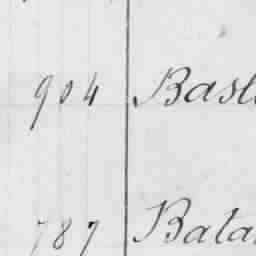 904 Bast
787 Bata